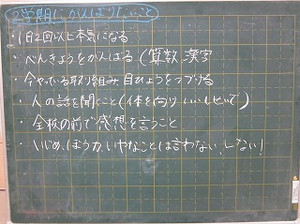 2学期にがんばりたいこと
・1日2回以上本気になる
・べんきょうをがんばる(算数 漢字
・今やっている取り組み 自れょうをつづける
・人の話を聞くこと(体を向け いいしせいで)
・全校の前で感想を言うこと
・いじめ、ぼう力、いやなことは言わない、しない!